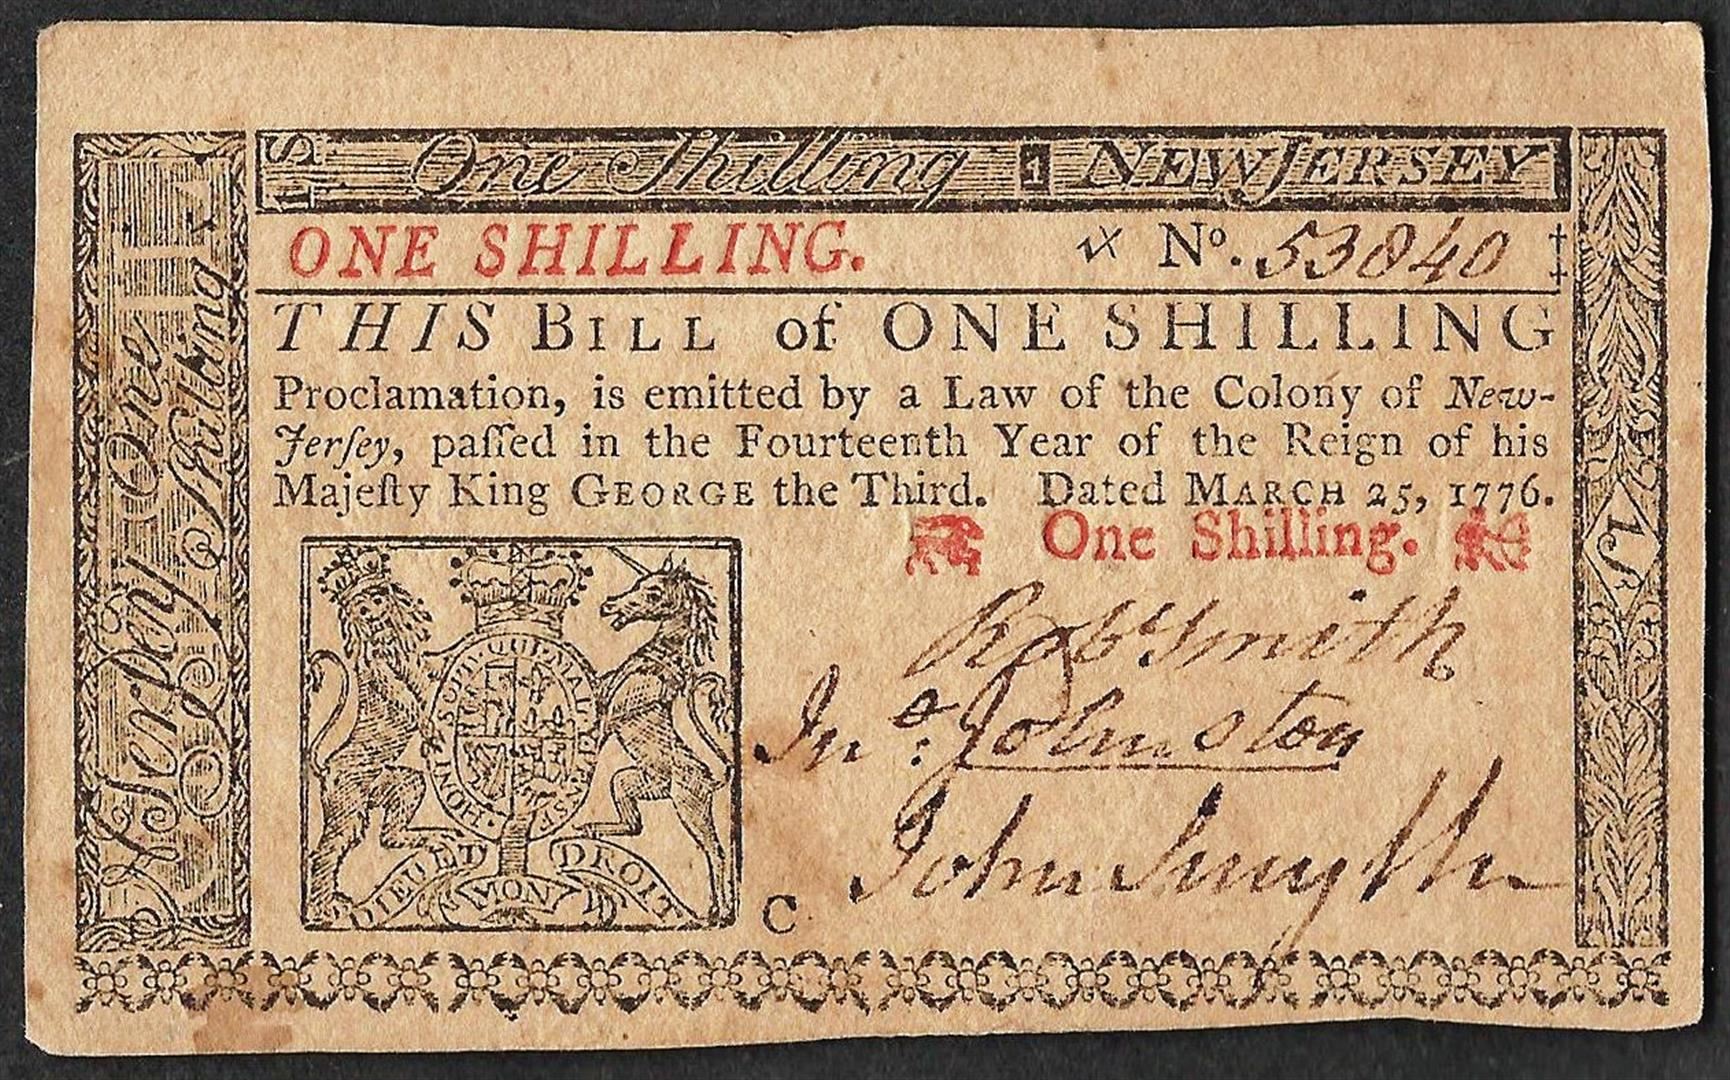 1S One Shilling 1 NEW JERSEY
ONE SHILLING. No. 53840 ‡
THIS BILL of ONE SHILLING
Proclamation, is emitted by a Law of the Colony of New-
Jerſey, paſſed in the Fourteenth Year of the Reign of his
Majeſty King GEORGE the Third. Dated MARCH 25, 1776.
One Shilling.
Robt Smith
Jno: Johnston
John Smyth
C
HONI SOIT QUI MAL Y PENSE
DIEU ET MON DROIT
Jerſey One
Shilling
1S